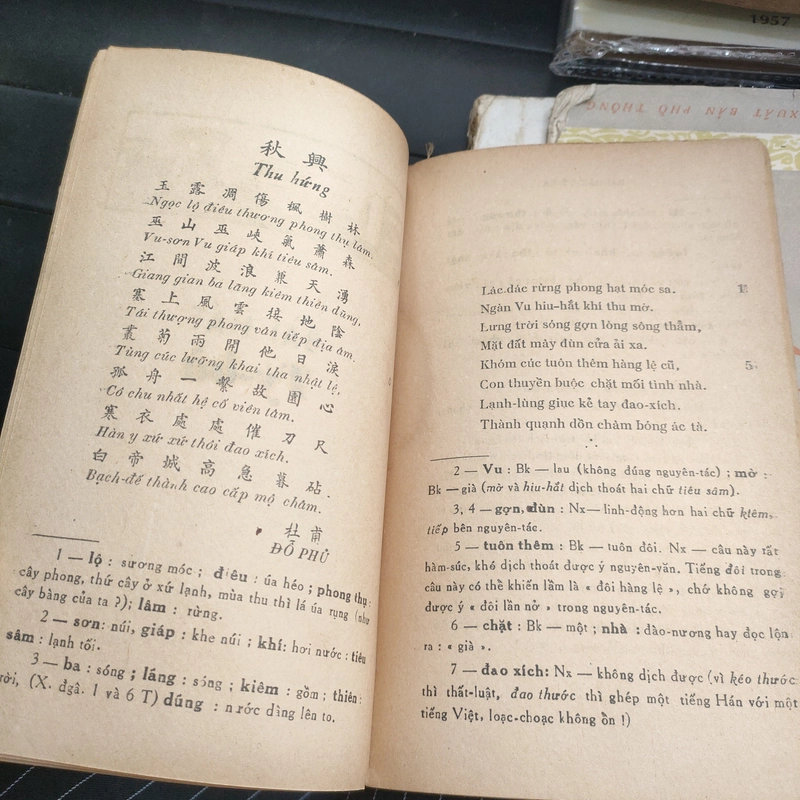 秋興
Thu hứng
玉露凋傷楓樹林
Ngọc lộ điêu thương phong thụ lâm.
巫山巫峽氣蕭森
Vu-sơn Vu giáp khí tiêu sâm.
江間波浪兼天湧
Giang gian ba lãng kiêm thiên dũng,
塞上風雲接地陰
Tái thượng phong vân tiếp địa âm.
叢菊兩開他日淚
Tùng cúc lưỡng khai tha nhật lệ,
孤舟一繫故園心
Cô chu nhất hệ cố viên tâm.
寒衣處處催刀尺
Hàn y xứ xứ thôi đao xích.
白帝城高急暮砧.
Bạch-đế thành cao cấp mộ châm.
杜甫
ĐỖ PHỦ
1 — lộ : sương móc ; điêu : úa héo ; phong thụ :
cây phong, thứ cây ở xứ lạnh, mùa thu thì lá úa rụng (như
cây bàng của ta ?) ; lâm : rừng.
2 — sơn: núi, giáp : khe núi ; khí: hơi nước ; tiêu
sâm : lạnh tối.
3 — ba : sóng ; láng : sóng ; kiêm : gồm ; thiên :
rời, (X. đgâ. 1 và 6 T) dúng : nước dâng lên to.
Lác.đác rừng phong hạt móc sa. 1
Ngàn Vu hiu-hắt khí thu mờ.
Lưng trời sóng gợn lòng sông thẳm,
Mặt đất mây đùn cửa ải xa.
Khóm cúc tuôn thêm hàng lệ cũ, 5
Con thuyền buộc chặt mối tình nhà.
Lạnh-lùng giục kẻ tay đao-xích.
Thành quạnh dồn châm bóng ác tà.
2 — Vu : Bk — lau (không đúng nguyên-tác) ; mờ :
Bk — già (mờ và hiu-hắt dịch thoát hai chữ tiêu sâm).
3, 4 — gợn, đùn : Nx — linh-động hơn hai chữ kiêm,
tiếp bên nguyên-tác.
5 — tuôn thêm : Bk — tuôn đôi. Nx — câu này rất
hàm-súc, khó dịch thoát được ý nguyên-văn. Tiếng đôi trong
câu này có thể khiến lầm là « đôi hàng lệ », chớ không gợi
được ý « đôi lần nở » trong nguyên-tác.
6 — chặt : Bk — một ; nhà : đào-nương hay đọc lộn
ra : « già ».
7 — đao xích: Nx — không dịch được (vì kéo thước
thì thất-luật, đao thước thì ghép một tiếng Hán với một
tiếng Việt, loạc-choạc không ổn !)
XUẤT BẢN PHỔ THÔNG
1957